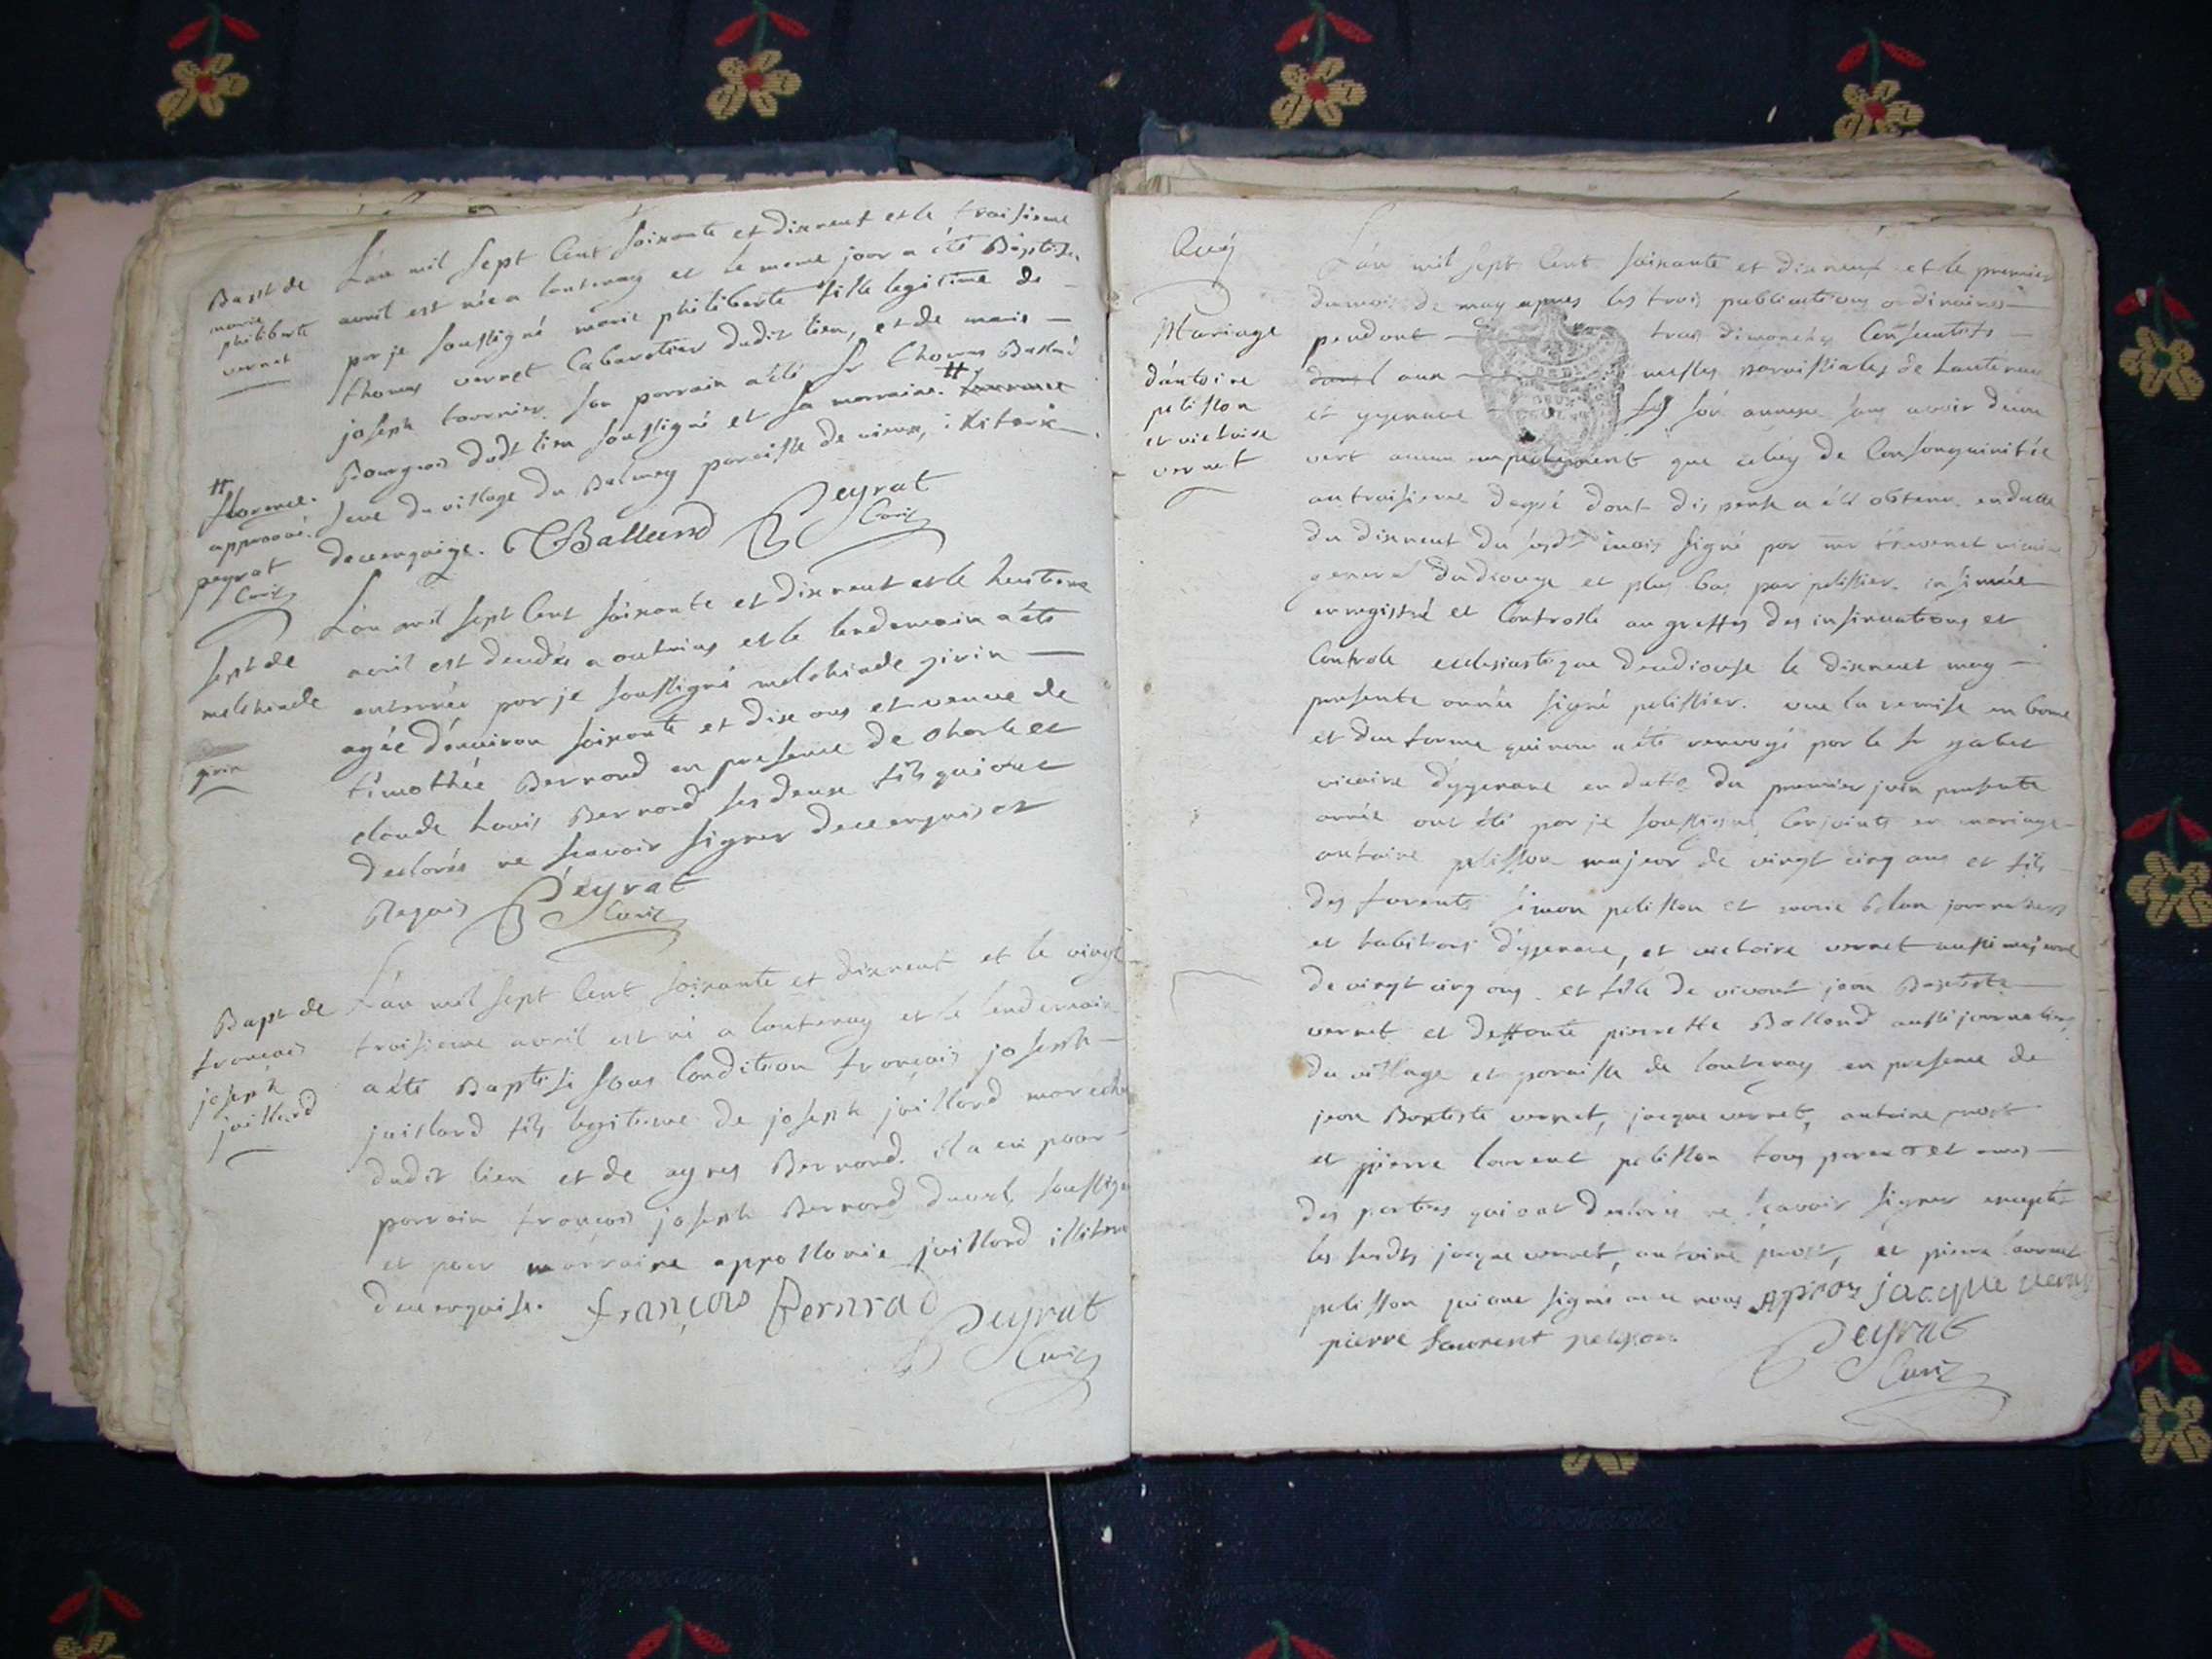 Bapt de
marie
philiberte
vernet
L'an mil sept Cent soixante et dixneuf et le troisieme
avril est née a lantenay et le meme jour a été Baptisée
par je soussigné marie philiberte fille legitime de
thomas vernet Cabaretier dudit lieu, et de marie
joseph tournier. son parrain a été sr thomas Balland
Bourgeois dudt lieu soussigné et sa marraine. #
seve du village du Balmey paroisse de vieux, illiterée
de ce enquise. TBalland Peyrat
Curé
#
florence.
approuvé.
peyrat
Curé
Sept de
melchiade
girin
L'an mil sept Cent soixante et dixneuf et le huitieme
avril est decedée a outriaz et le lendemain a été
enterrée par je soussigné melchiade girin
agée d'environ soixante et dix ans et veuve de
timothée Bernard en presence de charle et
claude Louis Bernard ses deux fils qui ont
declarés ne scavoir signer de ce enquis et
Requis Peyrat
Curé
Bapt de
francois
joseph
juillard
L'an mil sept Cent soixante et dixneuf et le vingt
troisieme avril est né a lantenay et le lendemain
a été Baptisé sous Condition francois joseph
juillard fils legitime de joseph juillard marechal
dudit lieu et de agnes Bernard. il a eu pour
parrain francois joseph Bernard soussigné
et pour marraine appollonie juillard
de ce enquise. françois Bernrad Peyrat
Curé
Mariage
d'antoine
pelisson
et victoire
vernet
L'an mil sept Cent soixante et dixneuf et le premier
du mois de may apres les trois publications ordinaires
pendant trois dimanches Consecutifs
aux messes paroissiales de Lantenay
et yzenave son annexe sans avoir decou
vert aucun empechement que celuy de Consanguinitée
au troisieme degré dont dispense a été obtenu en datte
du dixneuf du susdt mois signé par mr vicaire
general du diocese et plus bas par pelissier. insinuée
enregistré et Controllé au greffes des insinuations et
Controle eclesiastique du diocese le dixneuf may
presente année signé pelissier. vue la remise en bonne
et due forme qui nous a été renvoyé par le sr
vicaire d'yzenave en datte du premier juin presente
année ont été par je soussigné Conjoints en mariage
antoine pelisson majeur de vingt cinq ans et fils
des simon pelisson et marie
et habitans d'yzenave, et victoire vernet aussi majeure
de vingt cinq ans et fille de vivant jean Baptiste
vernet et deffunte pierrette Balland aussi journaliers
du village et paroisse de lantenay en presence de
jean Baptiste vernet, jacque vernet, antoine prost
et pierre laurent pelisson tous parens et amis
des parties qui ont declarés ne scavoir signer excepté
les susdts jacque vernet, antoine prost, et pierre laurent
pelisson qui ont signés avec nous jacque vernet
pierre Laurent pelisson Peyrat
Curé